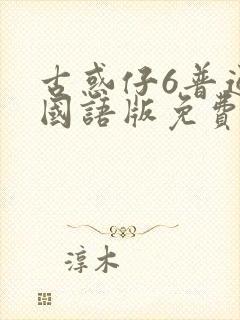 古惑仔6普通
國語版免費
淳木